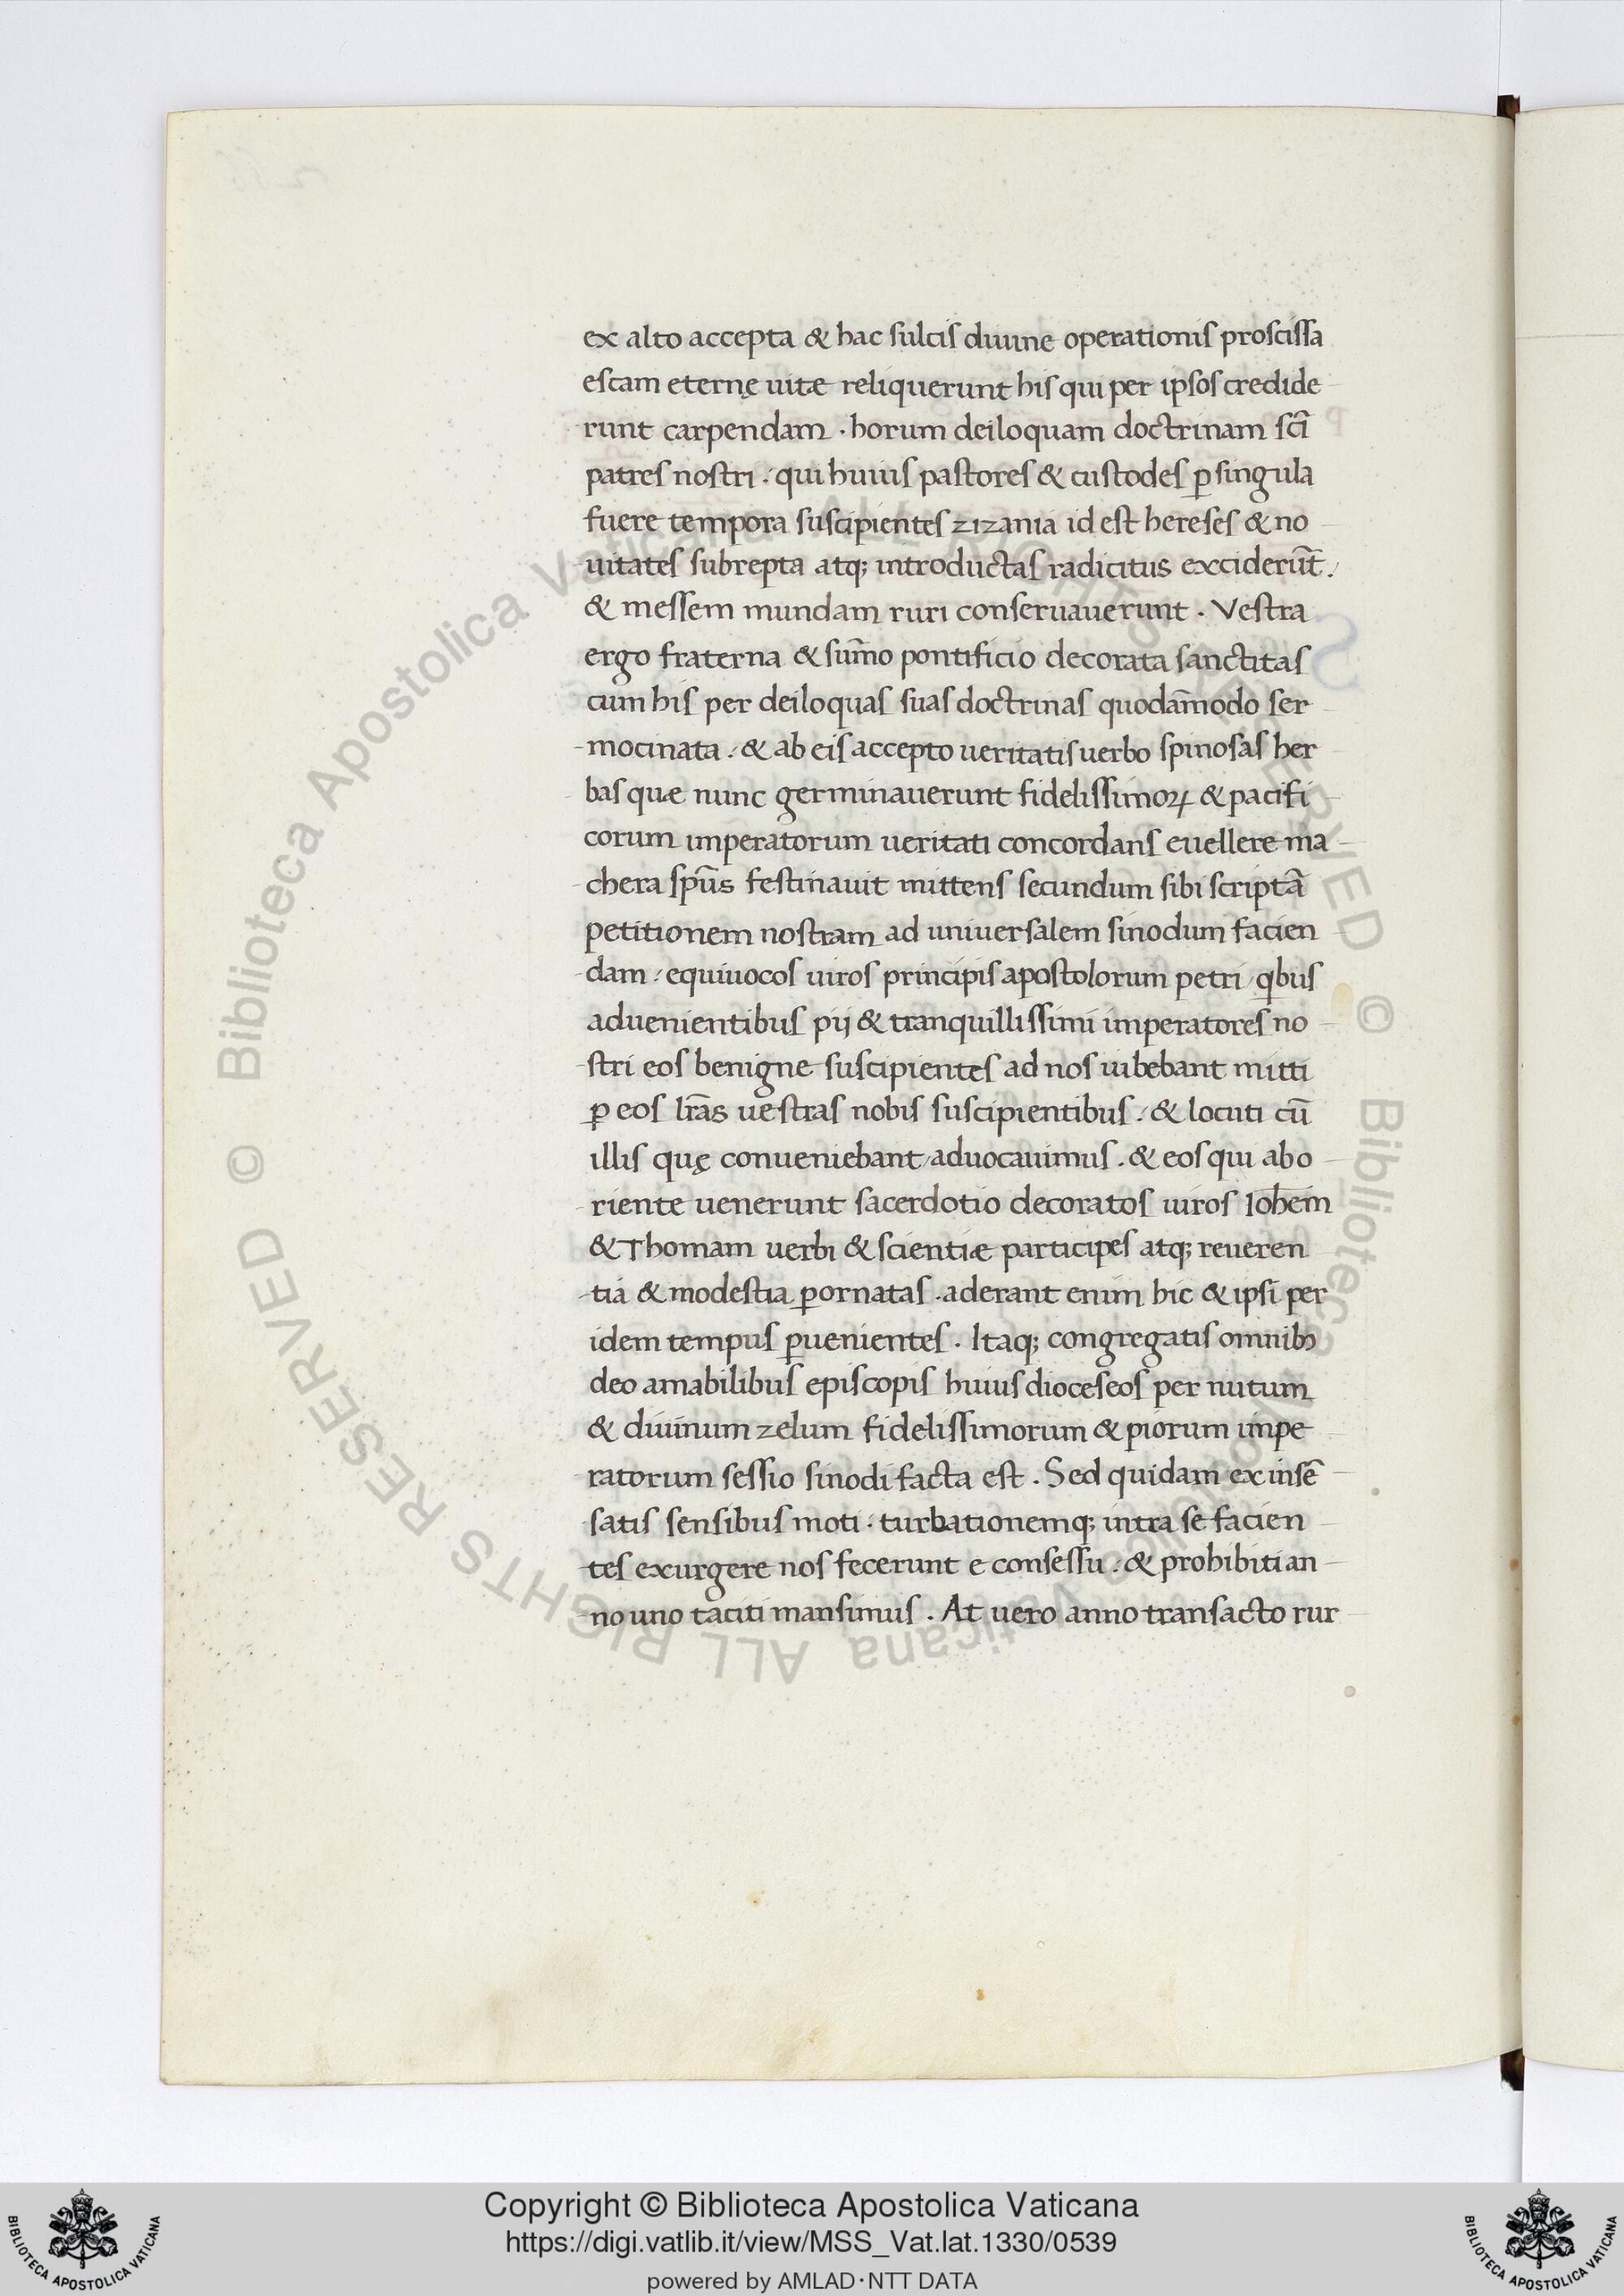 ex alto accepta & hac sulcis diuine operationis proscissa
escam eternę uitæ reliquerunt his qui per ipsos credide
runt carpendam . horum deiloquam doctrinam scī
patres nostri . qui huius pastores & custodes ꝑ singula
fuere tempora suscipientes zizania id est hereses & no
uitates subrepta atq; introductas radicitus exciderūt .
& messem mundam ruri conseruauerunt . Vestra
ergo fraterna & sum̄o pontificio decorata sanctitas
cum his per deiloquas suas doctrinas quodam̄odo ser
mocinata . & ab eis accepto ueritatis uerbo spinosas her
bas quæ nunc germinauerunt fidelissimoꝝ & pacifi
corum imperatorum ueritati concordans euellere ma
chera sp̄us festinauit mittens secundum sibi scriptā
petitionem nostram ad uniuersalem sinodum facien
dam . equiuocos uiros principis apostolorum petri / qbus
aduenientibus pij & tranquillissimi imperatores no
stri eos benigne suscipientes ad nos iubebant mitti
ꝑ eos lr̄as uestras nobis suscipientibus . & locuti cū
illis quę conueniebant / aduocauimus . & eos qui ab o
riente uenerunt sacerdotio decoratos uiros Ioh̄em
& Thomam uerbi & scientiæ participes atq; reueren
tia & modestia ꝑornatas . aderant enim hic & ipsi per
idem tempus ꝑuenientes . Itaq; congregatis omnibꝫ
deo amabilibus episcopis huius dioceseos per nutum
& diuinum zelum fidelissimorum & piorum impe
ratorum sessio sinodi facta est . Sed quidam ex insē
satis sensibus moti . turbationemq; intra se facien
tes exurgere nos fecerunt e consessu . & prohibiti an
no uno taciti mansimus . At uero anno transacto rur
© Biblioteca Apostolica Vaticana ALL RIGHTS RESERVED © Biblioteca Apostolica Vaticana ALL RIGHTS RESERVED
Copyright © Biblioteca Apostolica Vaticana
https://digi.vatlib.it/view/MSS_Vat.lat.1330/0539
powered by AMLAD·NTT DATA
BIBLIOTECA APOSTOLICA VATICANA
BIBLIOTECA APOSTOLICA VATICANA